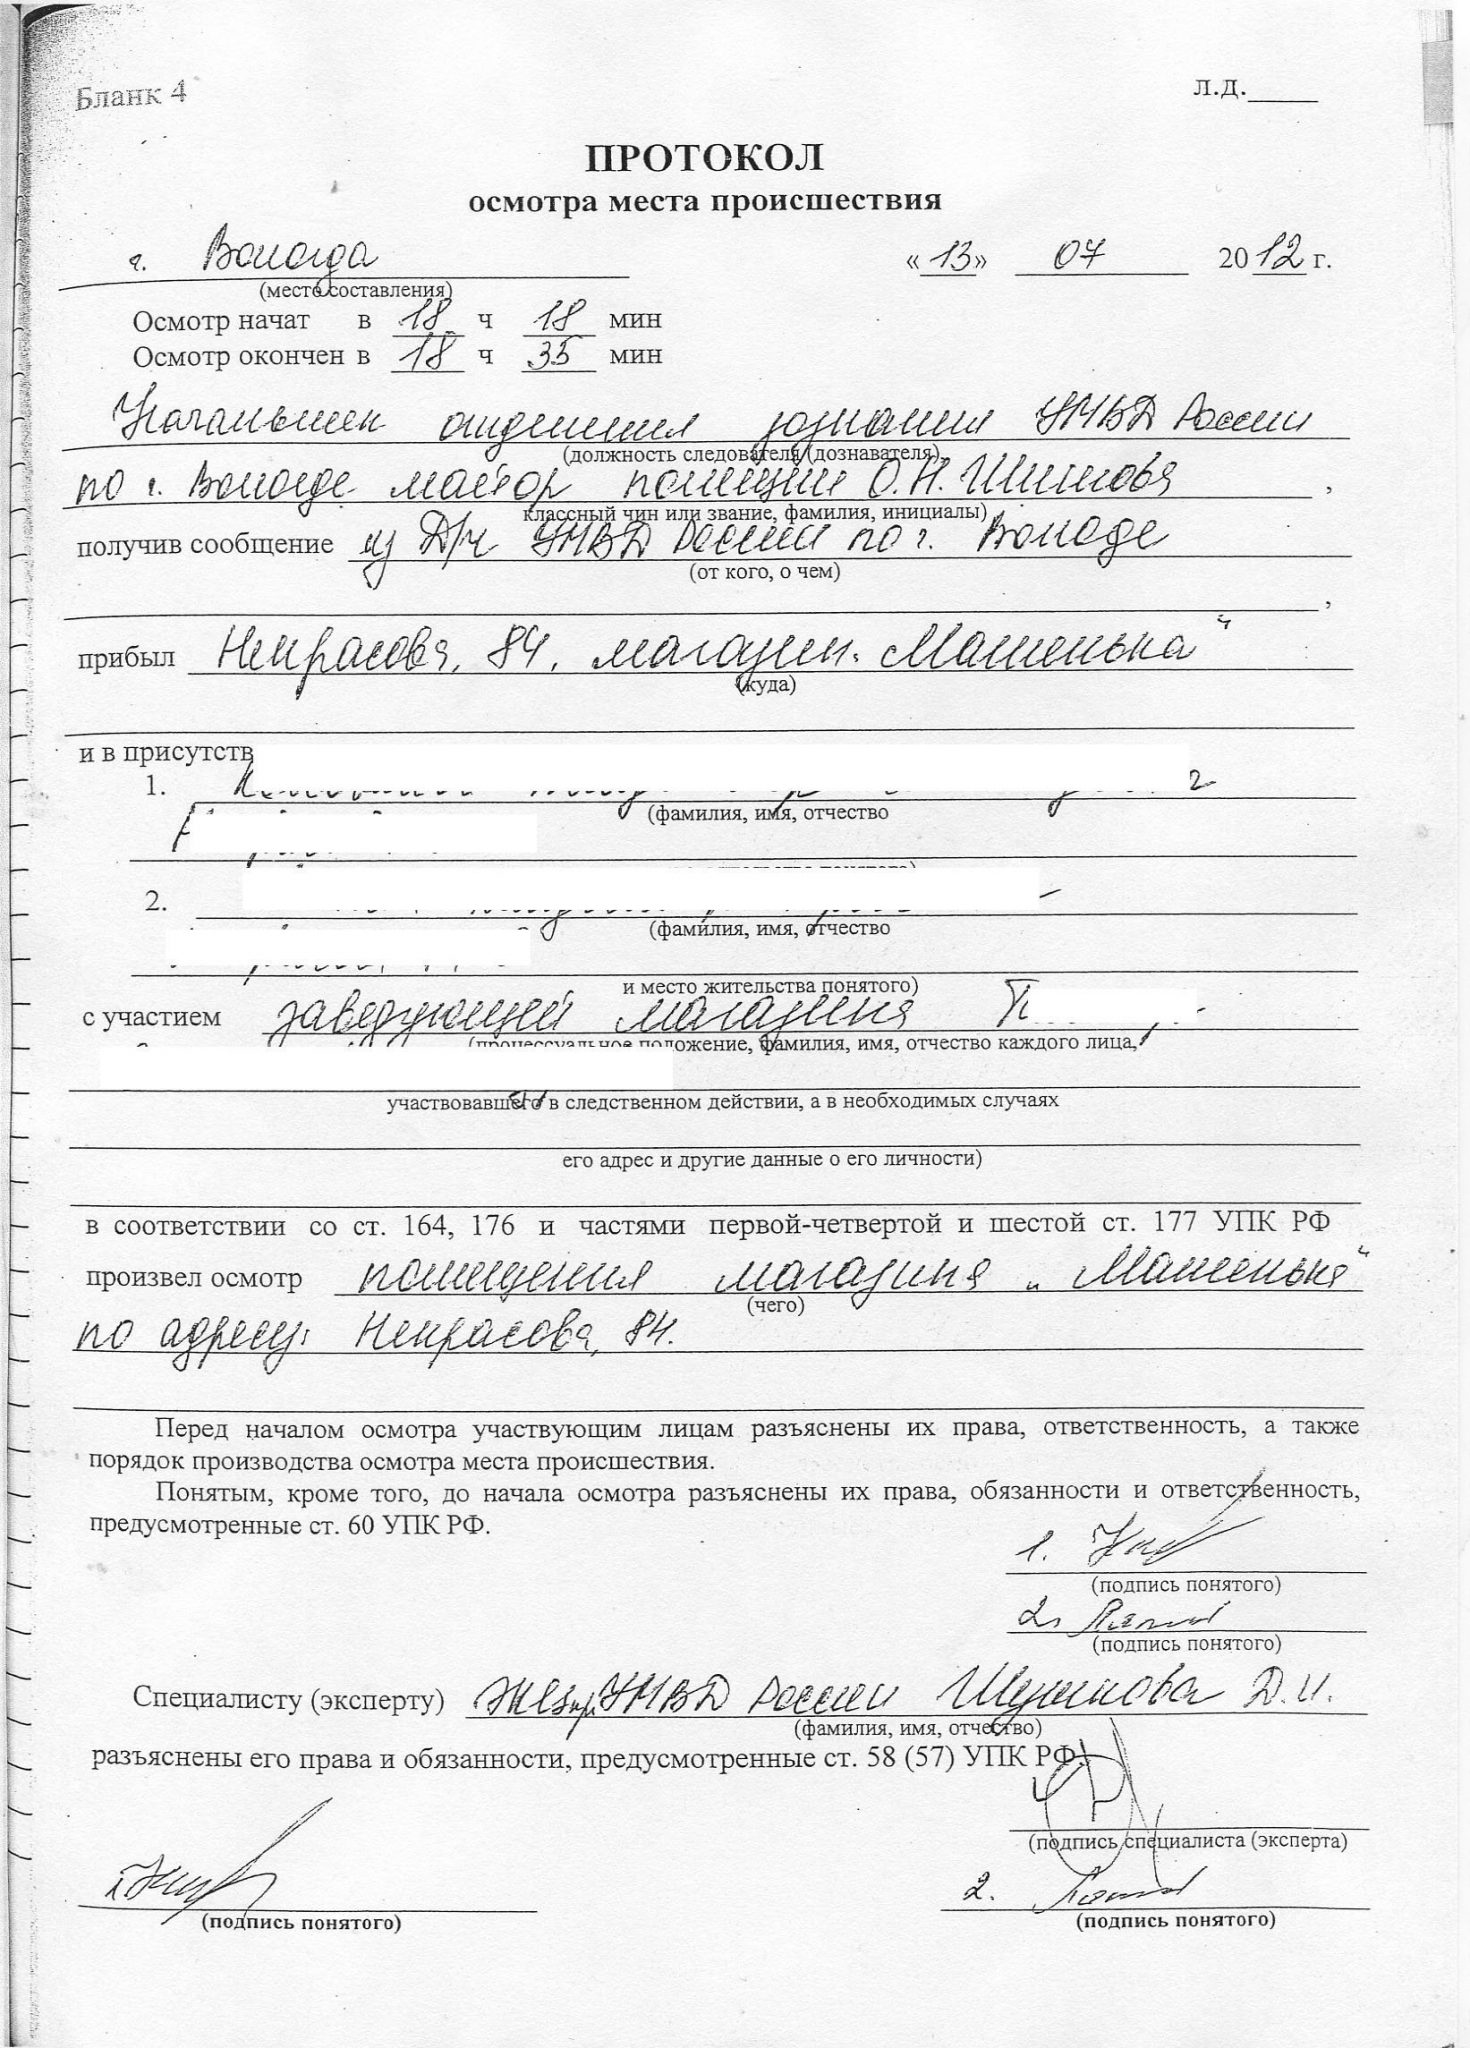 Бланк 4
л.д.____
ПРОТОКОЛ
осмотра места происшествия
г. Вологда «13» 07 2012 г.
(место составления)
Осмотр начат в 18 ч 18 мин
Осмотр окончен в 18 ч 35 мин
Начальник отделения дознания УМВД России
(должность следователя (дознавателя),
по г. Вологде майор полиции О.Н. Шилова
классный чин или звание, фамилия, инициалы)
получив сообщение из Д/ч УМВД России по г. Вологде
(от кого, о чем)
прибыл Некрасова, 84, магазин „Машенька“
(куда)
и в присутств
1.
(фамилия, имя, отчество
2.
(фамилия, имя, отчество
и место жительства понятого)
с участием заведующей магазина П
(процессуальное положение, фамилия, имя, отчество каждого лица,
участвовавшего в следственном действии, а в необходимых случаях
его адрес и другие данные о его личности)
в соответствии со ст. 164, 176 и частями первой-четвертой и шестой ст. 177 УПК РФ
произвел осмотр помещения магазина „Машенька“
(чего)
по адресу: Некрасова, 84.
Перед началом осмотра участвующим лицам разъяснены их права, ответственность, а также
порядок производства осмотра места происшествия.
Понятым, кроме того, до начала осмотра разъяснены их права, обязанности и ответственность,
предусмотренные ст. 60 УПК РФ.
1.
(подпись понятого)
2.
(подпись понятого)
Специалисту (эксперту) УМВД России Д.И.
(фамилия, имя, отчество)
разъяснены его права и обязанности, предусмотренные ст. 58 (57) УПК РФ.
(подпись специалиста (эксперта)
1. 2.
(подпись понятого) (подпись понятого)